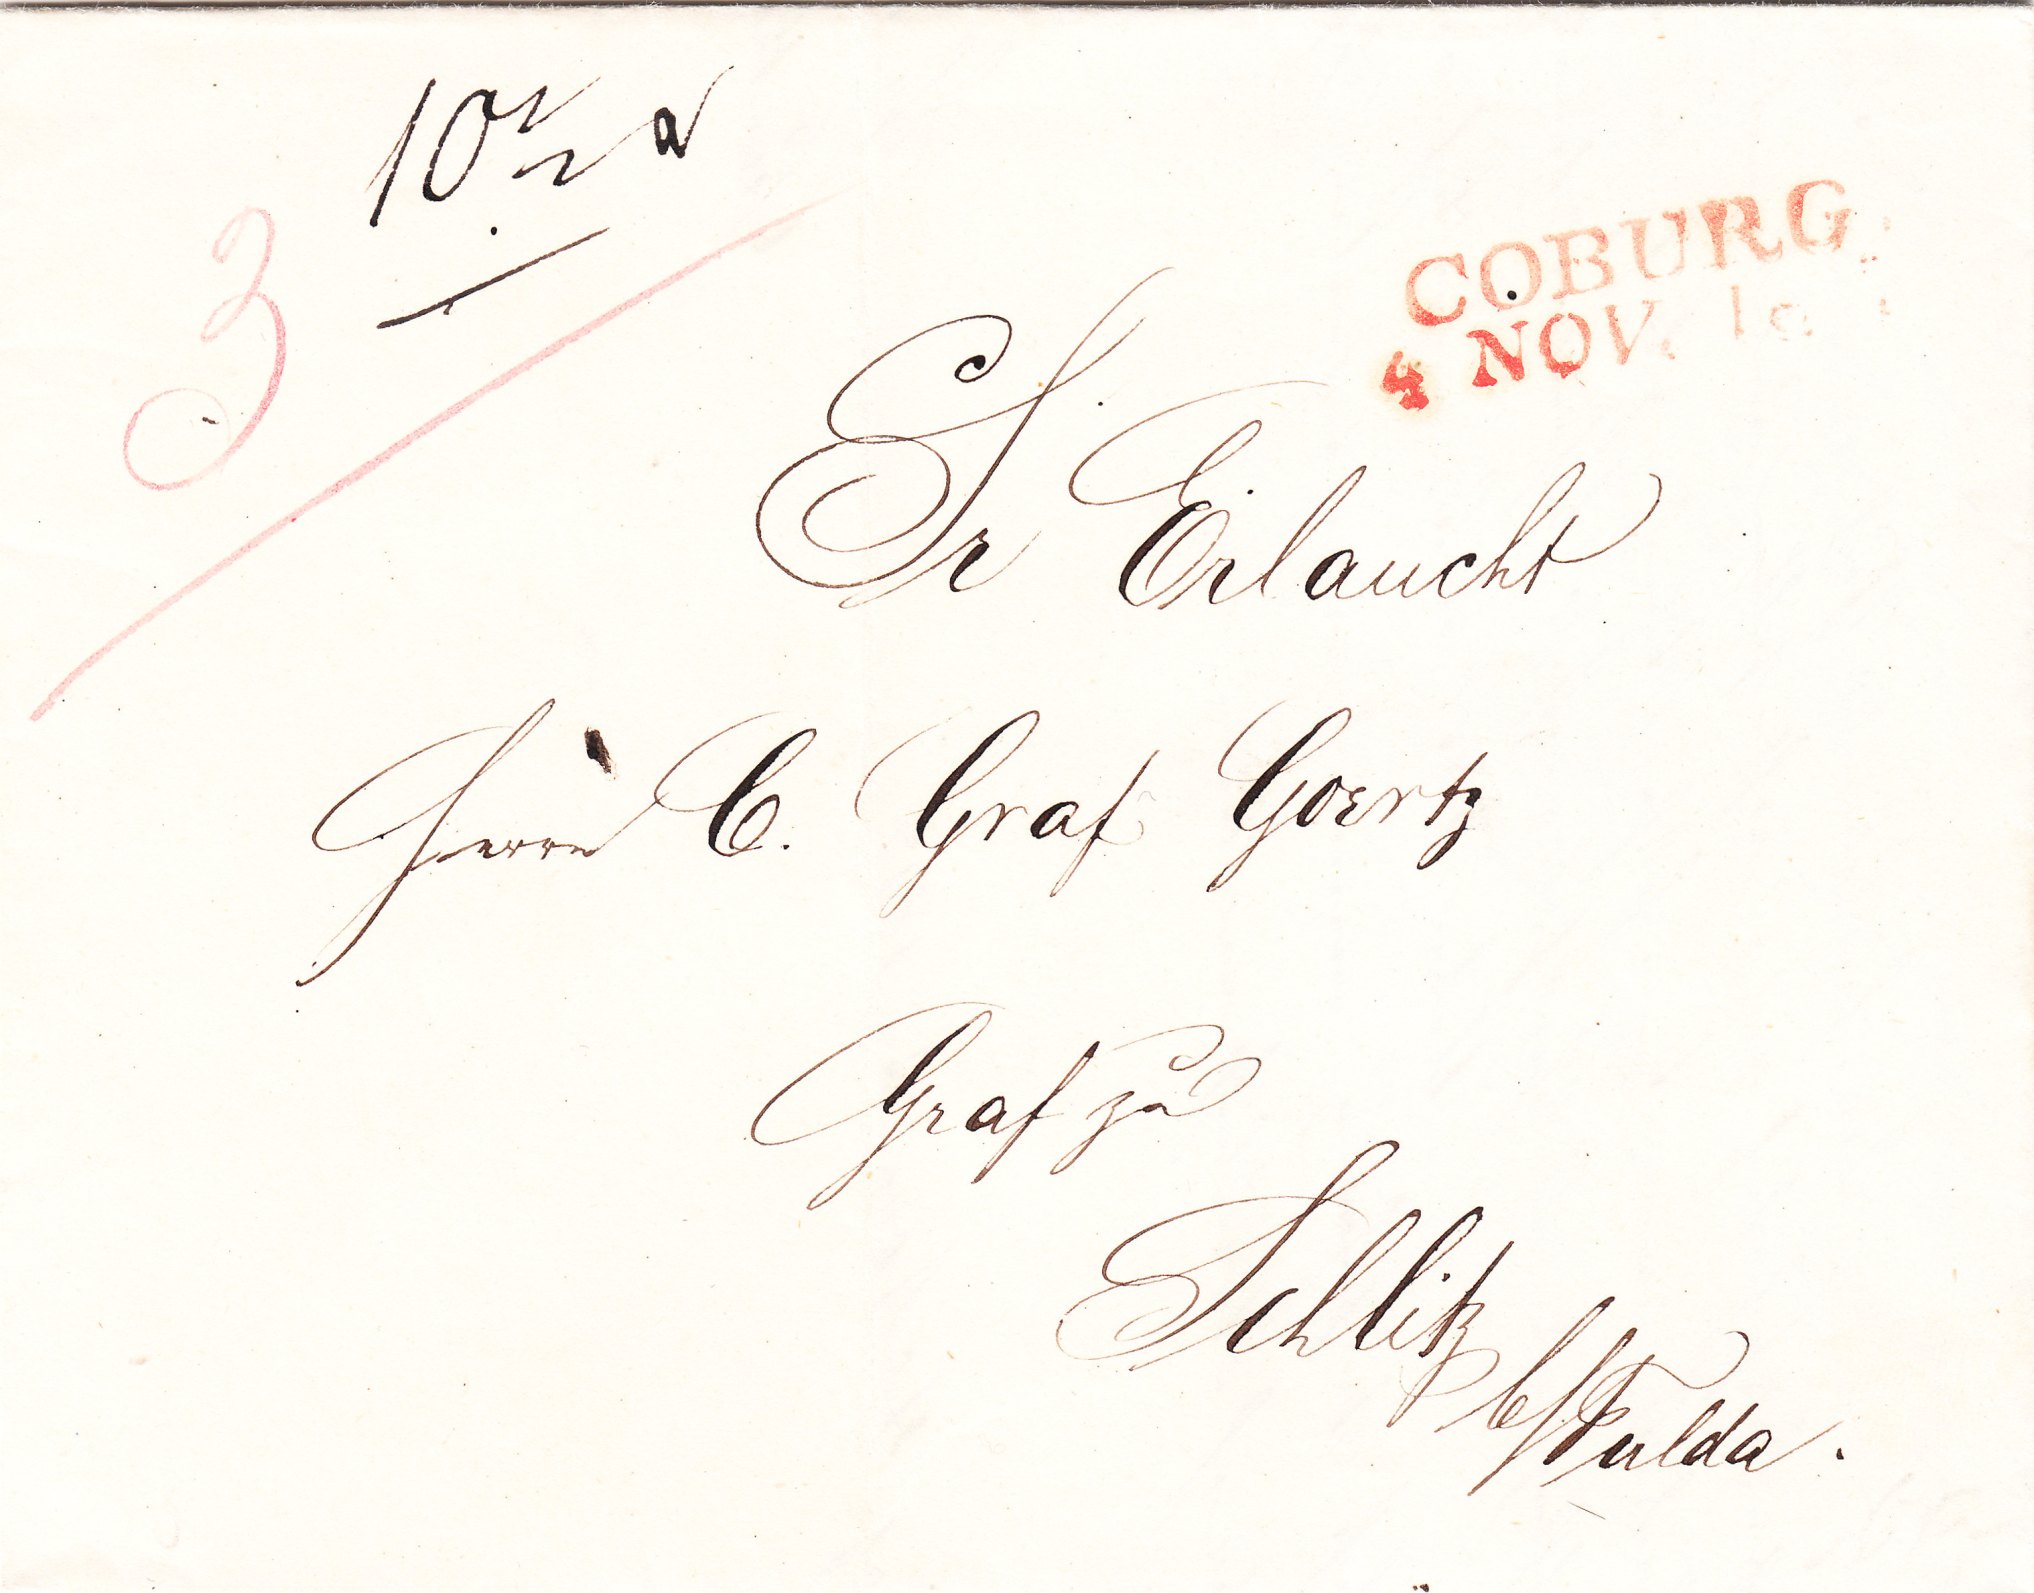 10
3
COBURG
4 NOV.
Sr Erlaucht
Herrn C. Graf Goertz
Graf zu
Schlitz
b/Fulda.